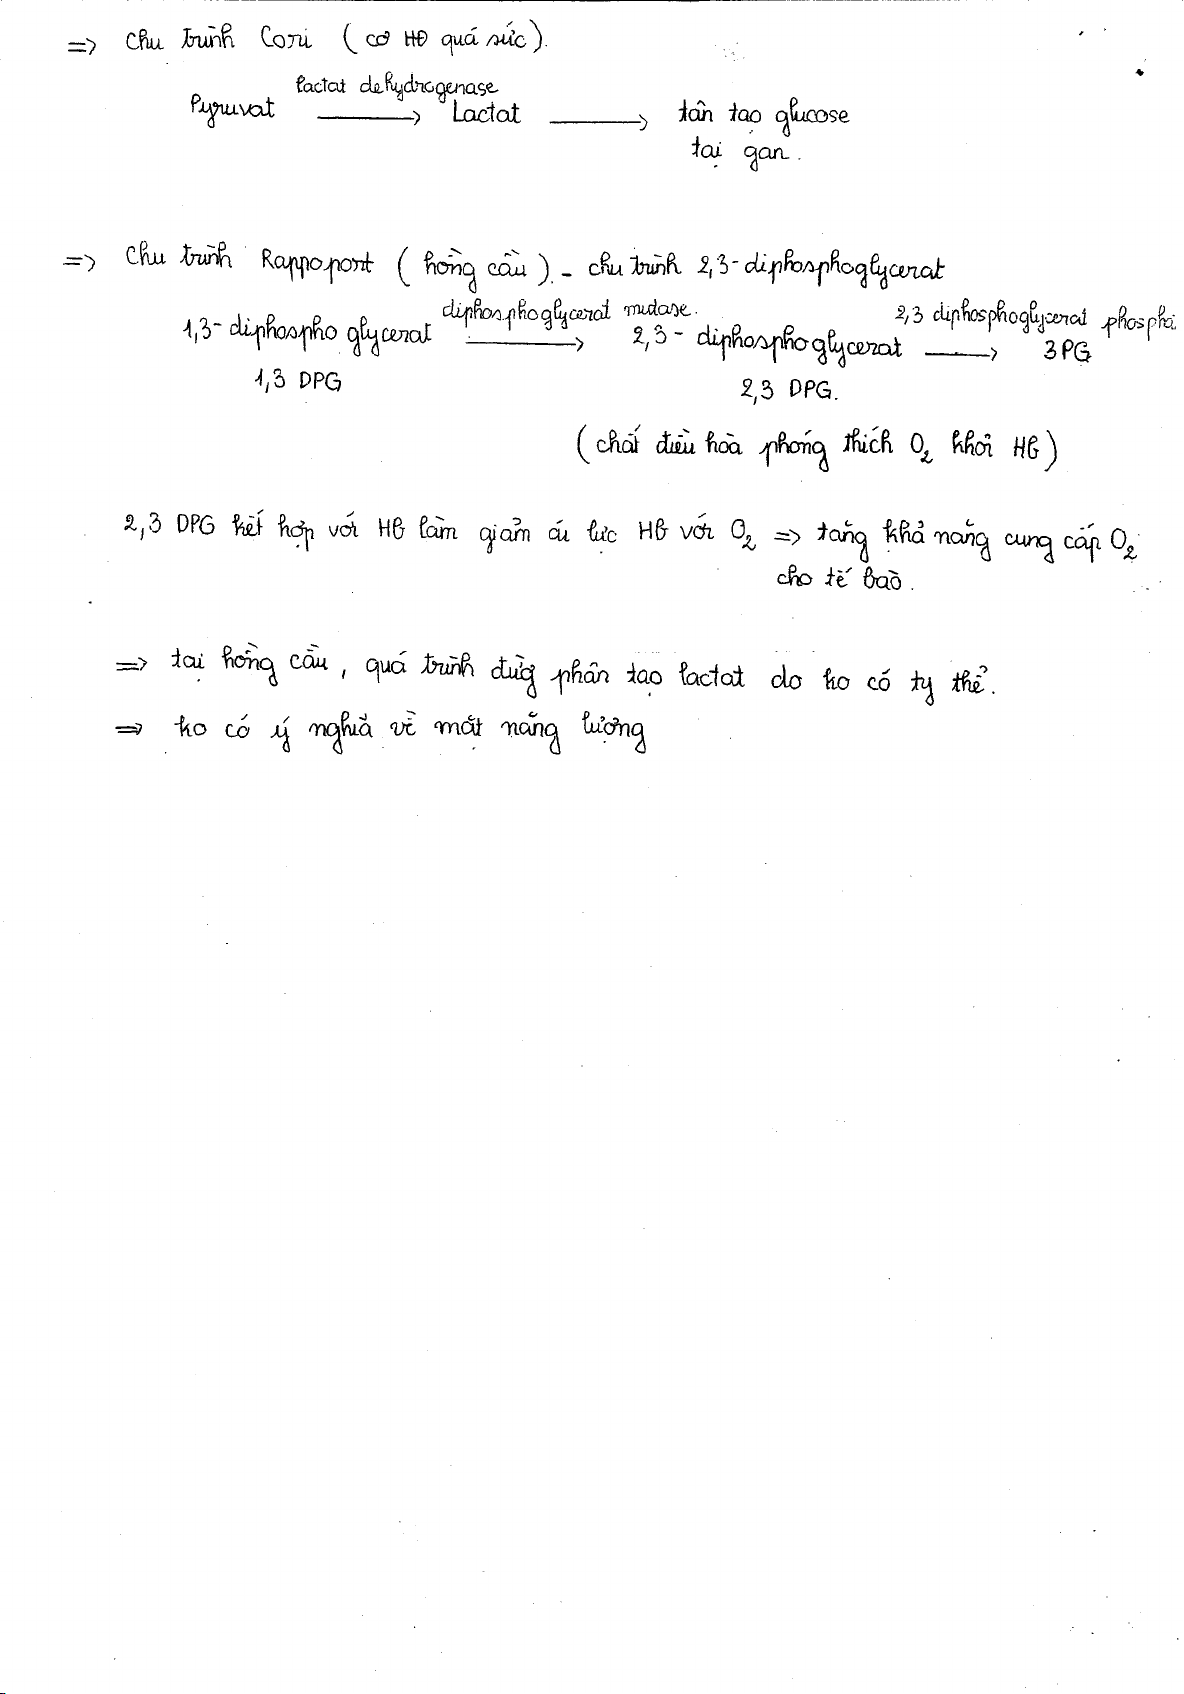 => Chu trình Cori (cơ HĐ quá sức).
lactat dehydrogenase
Pyruvat → Lactat → tân tạo glucose
tại gan.
=> Chu trình Rappoport (hồng cầu). - chu trình 2,3-diphosphoglycerat
diphosphoglycerat mutase. 2,3 diphosphoglycerat phospha
1,3-diphospho glycerat → 2,3-diphosphoglycerat → 3PG
1,3 DPG 2,3 DPG.
(chất điều hòa phóng thích O₂ khỏi Hb)
2,3 DPG kết hợp với Hb làm giảm ái lực Hb với O₂ => tăng khả năng cung cấp O₂
cho tế bào.
=> tại hồng cầu, quá trình đường phân tạo lactat do ko có ty thể.
=> ko có ý nghĩa về mặt năng lượng